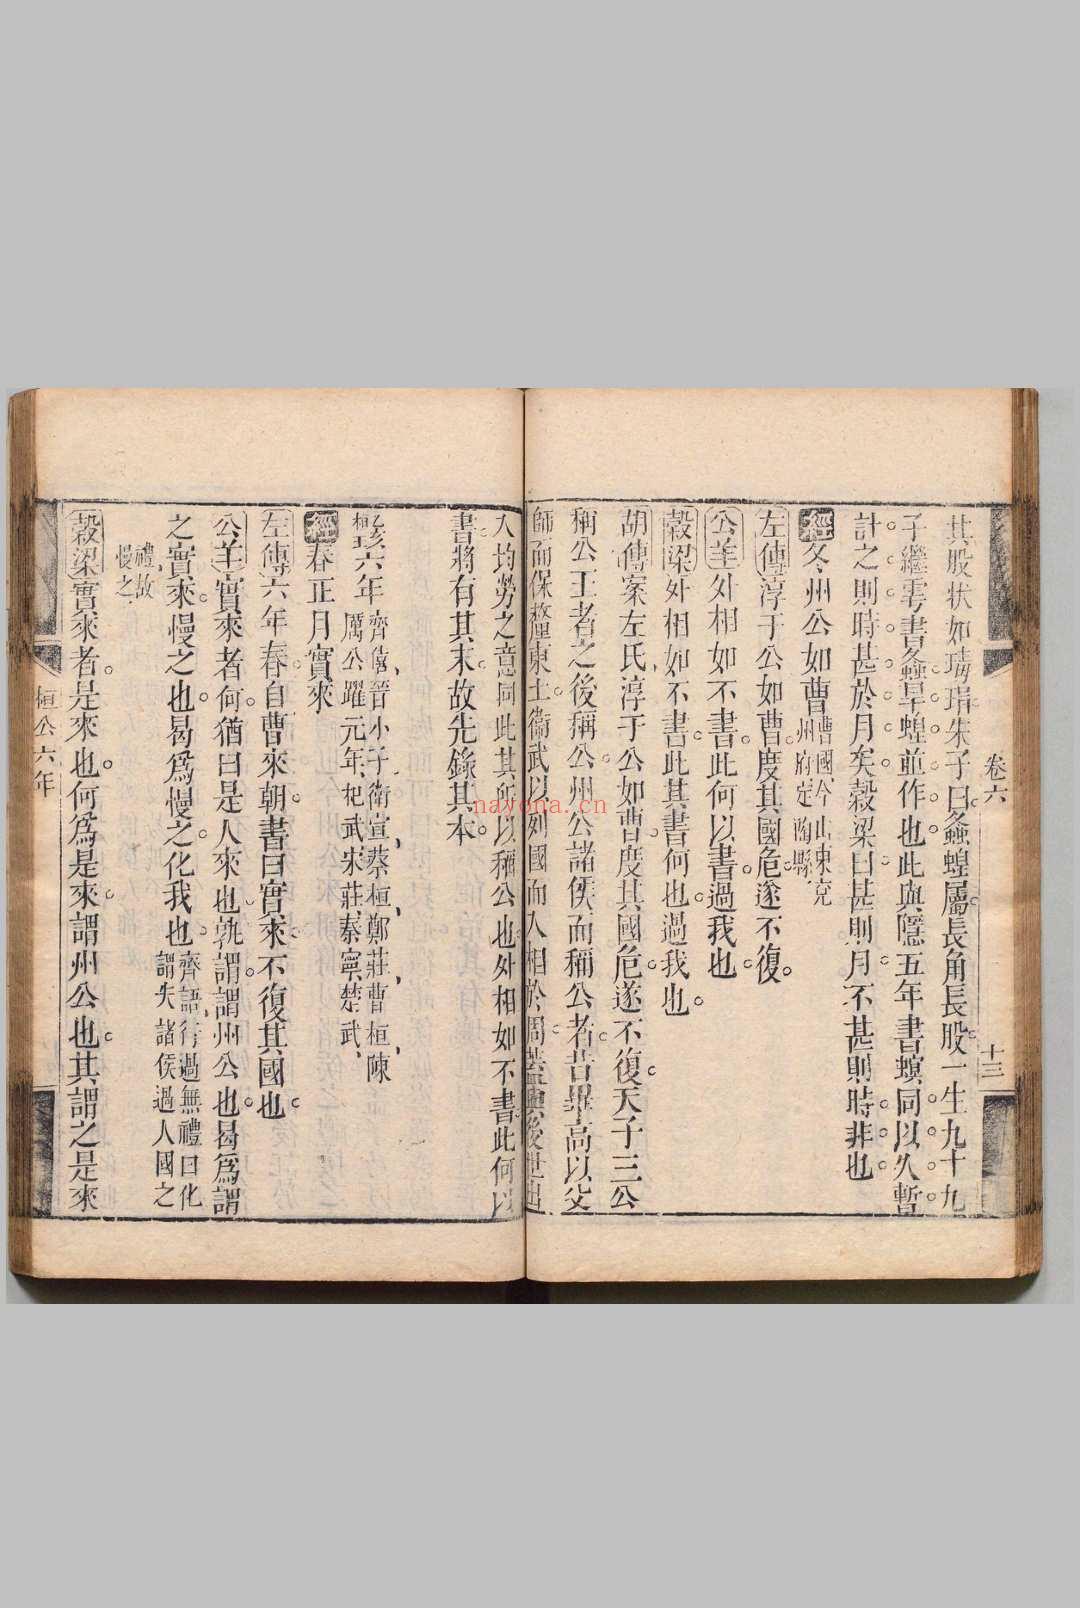 卷六
十三
其股状如瑇瑁朱子曰螽蝗屬長角長股一生九十九
子繼雩書螽旱蝗並作也此與隱五年書螟同以久暫
計之則時甚於月矣穀梁曰甚則月不甚則時非也
經冬州公如曹曹國今山東兗
州府定陶縣
左傳淳于公如曹度其國危遂不復
公羊外相如不書此何以書過我也
穀梁外相如不書此其書何也過我也
胡傳案左氏淳于公如曹度其國危遂不復天子三公
稱公王者之後稱公州公諸侯而稱公者昔畢高以父
師而保釐東土衞武以列國而入相於周蓋與後世出
入均勞之意同此其所以稱公也外相如不書此何以
書將有其末故先錄其本
六年齊僖晉小子衛宣蔡桓鄭莊曹桓陳
厲公躍元年杞武宋莊秦寧楚武
經春正月寔來
左傳六年春自曹來朝書曰寔來不復其國也
公羊寔來者何猶曰是人來也孰謂謂州公也曷為謂
之寔來慢之也曷為慢之化我也齊語行過無禮曰化
謂失諸侯過人國之
禮故
慢之
穀梁寔來者是來也何為是來謂州公也其謂之是來
桓公六年
navona.cn